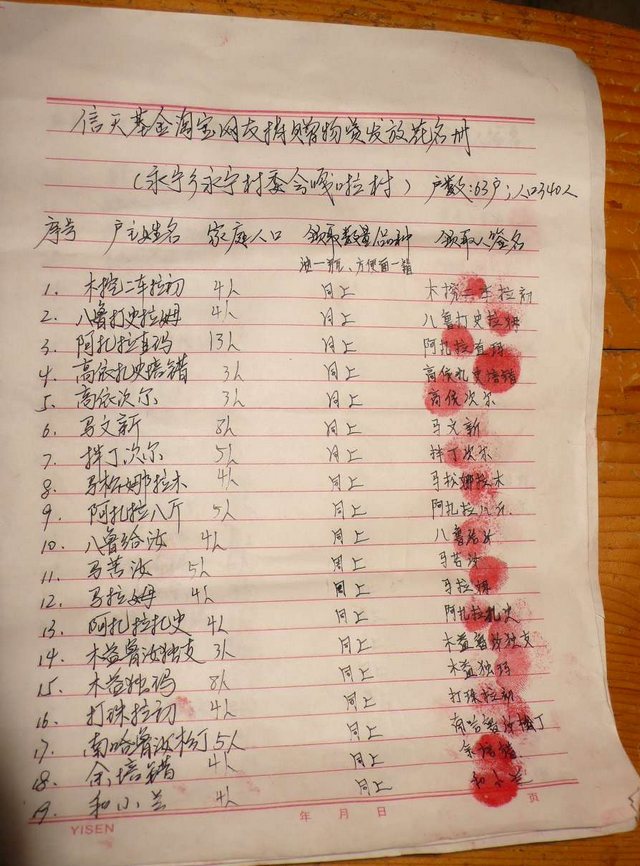 信天基金淘宝网友捐赠物资发放花名册
(永宁乡永宁村委会嘎啦村) 户数:63户;人口340人
序号 户主姓名 家庭人口 领取数量品种 领取人签名
油一瓶、方便面一箱
1. 木挖二车拉初 4人 同上 木挖二车拉初
2. 八鲁打史拉姆 4人 同上 八鲁打史拉姆
3. 阿扎拉直玛 13人 同上 阿扎拉直玛
4. 高依扎史培错 3人 同上 高依扎史培错
5. 高依次尔 3人 同上 高依次尔
6. 马文新 8人 同上 马文新
7. 拌丁次尔 5人 同上 拌丁次尔
8. 马松娜拉木 4人 同上 马松娜拉木
9. 阿扎拉八斤 5人 同上 阿扎拉八斤
10. 八鲁给汝 4人 同上 八鲁给汝
11. 马苦汝 5人 同上 马苦汝
12. 马拉姆 4人 同上 马拉姆
13. 阿扎拉扎史 4人 同上 阿扎拉扎史
14. 木益鲁汝独支 3人 同上 木益鲁汝独支
15. 木益独玛 8人 同上 木益独玛
16. 打珠拉初 4人 同上 打珠拉初
17. 南哈鲁汝松丁 5人 同上 南哈鲁汝松丁
18. 余培错 4人 同上 余培错
19. 和小兰 4人 同上 和小兰
YISEN 年 月 日 页